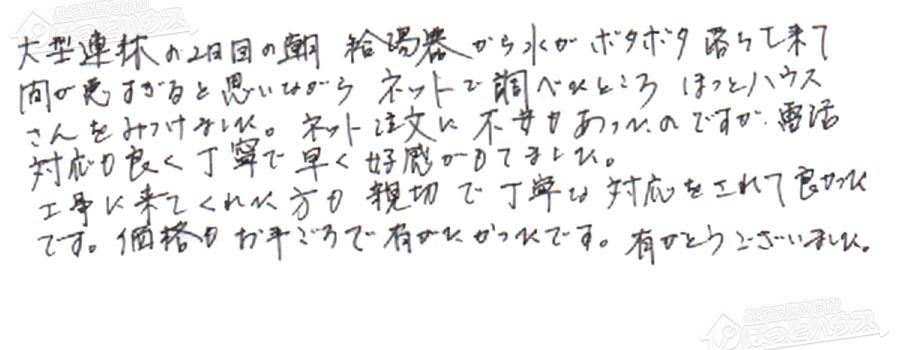 大型連休の2日目の朝 給湯器から水がボタボタ落ちて来て
間が悪すぎると思いながら ネットで調べたところ ほっとハウス
さんをみつけました。ネット注文に不安もあったのですが、電話
対応も良く丁寧で早く好感がもてました。
工事に来てくれた方も親切で丁寧な対応をされて良かった
です。価格もお手ごろで有がたかったです。有がとうございました。
ほっとハウス
ほっとハウス